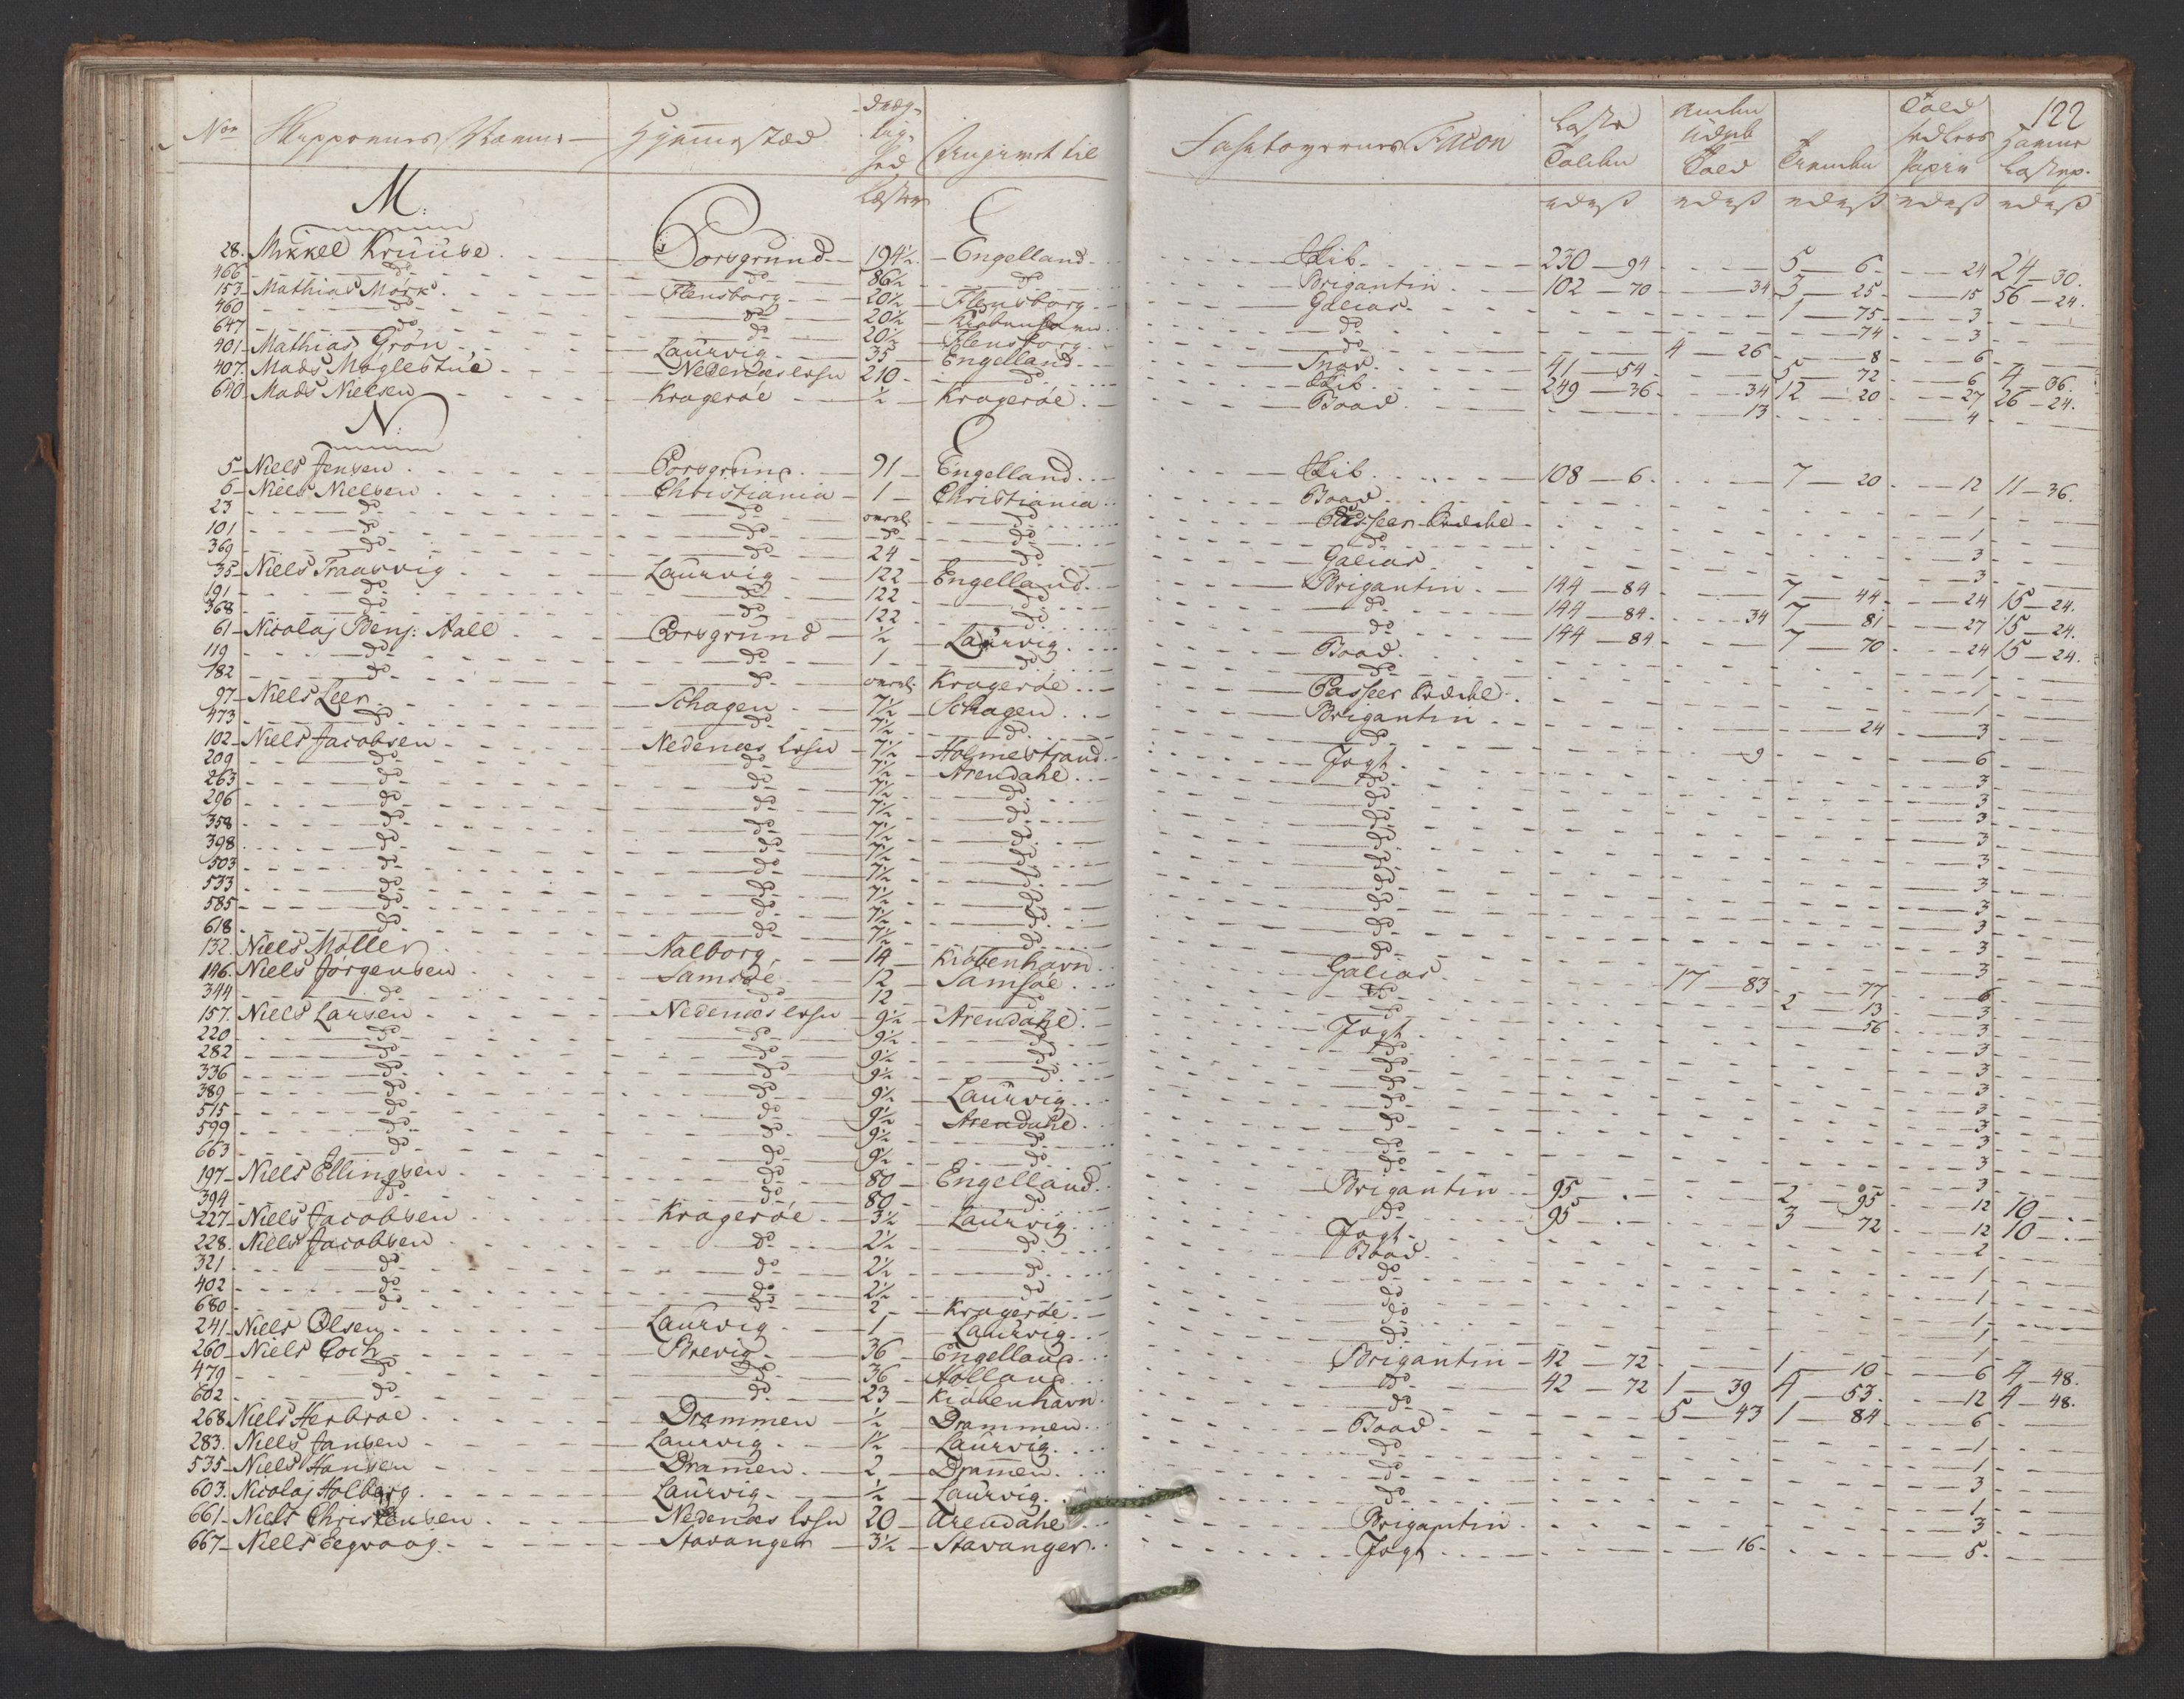 122
Nos Skippernes Navne Hjemmestæd Dræg- tig- hed Læster Angivet til Fartøyernes Facon Laste Tolden Told
M:
28. Mikkel Kruuse Porsgrund 194½ Engelland Skib 230 94 5 6 24 24 30
466 do do 86½ do Brigantin 102 70 34 3 25 15 56 24
153 Mathias Mørk Flensborg 20½ Flensborg Galias 1 75 3
460 do do 20½ Kiøbenhavn do 74 3
647 do do 20½ Flensborg do 4 26 8 6
401 Mathias Grøn Laurvig 35 Engelland Snav 41 54 5 72 6 4 36
407 Mads Moglestue Nedenæs 210 do Skib 249 36 34 12 20 27 26 24
640 Mads Nielsen Kragerøe ½ Kragerøe Baad 13 4
N:
5 Niels Jensen Porsgrund 91 Engelland Skib 108 6 7 20 12 11 36
6 Niels Nielsen Christiania 1 Christiania Baad 1
23 do do do Passeer Sædel 1
101 do do do do do 3
369 do do 24 do Galias 3
35 Niels Traasvig Laurvig 122 Engelland Brigantin 144 84 7 44 24 15 24
191 do do 122 do do 144 84 34 7 81 27 15 24
368 do do 122 do do 144 84 7 70 24 15 24
61 Nicolaj Benj: Aall Porsgrund ½ Laurvig Baad 1
119 do do 1 do do 1
182 do do Kragerøe Passeer Sædel 1
97 Niels Leer Schagen 7½ Schagen Brigantin 24 3
473 do do 7½ do do 9 6
102 Niels Jacobsen Nedenæs 7½ Holmestrand Jagt 3
209 do do 7½ Arendahl do 3
263 do do 7½ do do 3
296 do do 7½ do do 3
358 do do 7½ do do 3
398 do do 7½ do do 3
503 do do 7½ do do 3
533 do do 7½ do do 3
585 do do 7½ do do 3
618 do do 7½ do do 3
132 Niels Møller Aalborg 14 Kiøbenhavn Galias 17 83 77 6
146 Niels Jørgensen Samsøe 12 Samsøe do 2 13 3
344 do do 12 do do 56 3
157 Niels Larsen Nedenæs 9½ Arendahl Jagt 3
220 do do 9½ do do 3
282 do do 9½ do do 3
336 do do 9½ do do 3
389 do do 9½ Laurvig do 3
515 do do 9½ Arendahl do 3
599 do do 9½ do do 3
663 do do 9½ do do 3
197 Niels Ellingsen do 80 Engelland Brigantin 95 2 95 12 10
394 do do 80 do do 95 3 72 12 10
227 Niels Jacobsen Kragerøe 3½ Laurvig Jagt 2
228 Niels Jacobsen do 2½ do Baad 1
321 do do 2½ do do 1
402 do do 2½ do do 1
680 do do 2 Kragerøe do 1
241 Niels Olsen Laurvig 1 Laurvig do 1
260 Niels Coch Brevig 36 Engelland Brigantin 42 72 1 10 6 4 48
479 do do 36 Holland do 42 72 1 39 4 53 12 4 48
602 do do 23 Kiøbenhavn do 5 43 1 84 6
268 Niels Herbroe Drammen ½ Drammen Baad 1
283 Niels Jansen Laurvig 1½ Laurvig do 1
535 Niels Hansen Dramen 2 Dramen do 3
603 Nicolaj Holberg Laurvig ½ Laurvig do 1
661 Niels Christensen Nedenæs 20 Arendahl Brigantin 3
667 Niels Eegvaag Stavanger 3½ Stavanger Jagt 16 5